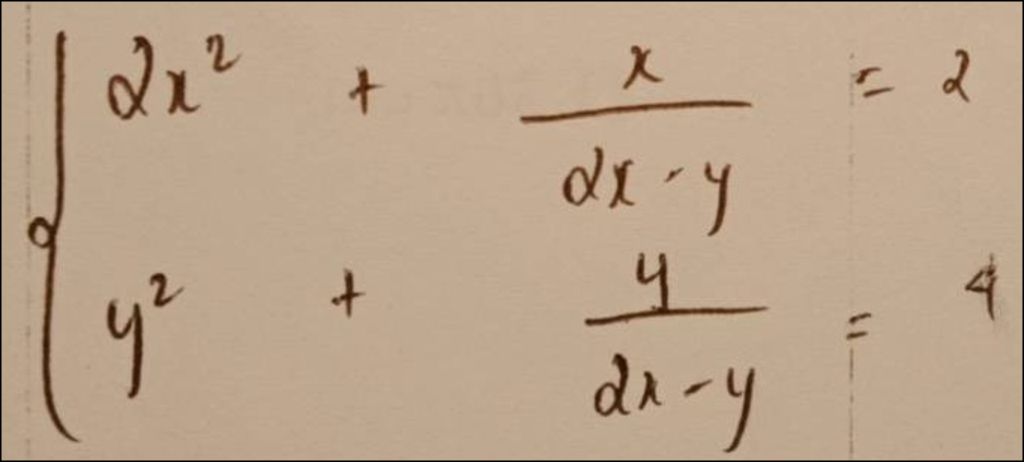 2x² + x/(2x - y) = 2
y² + y/(2x - y) = 4